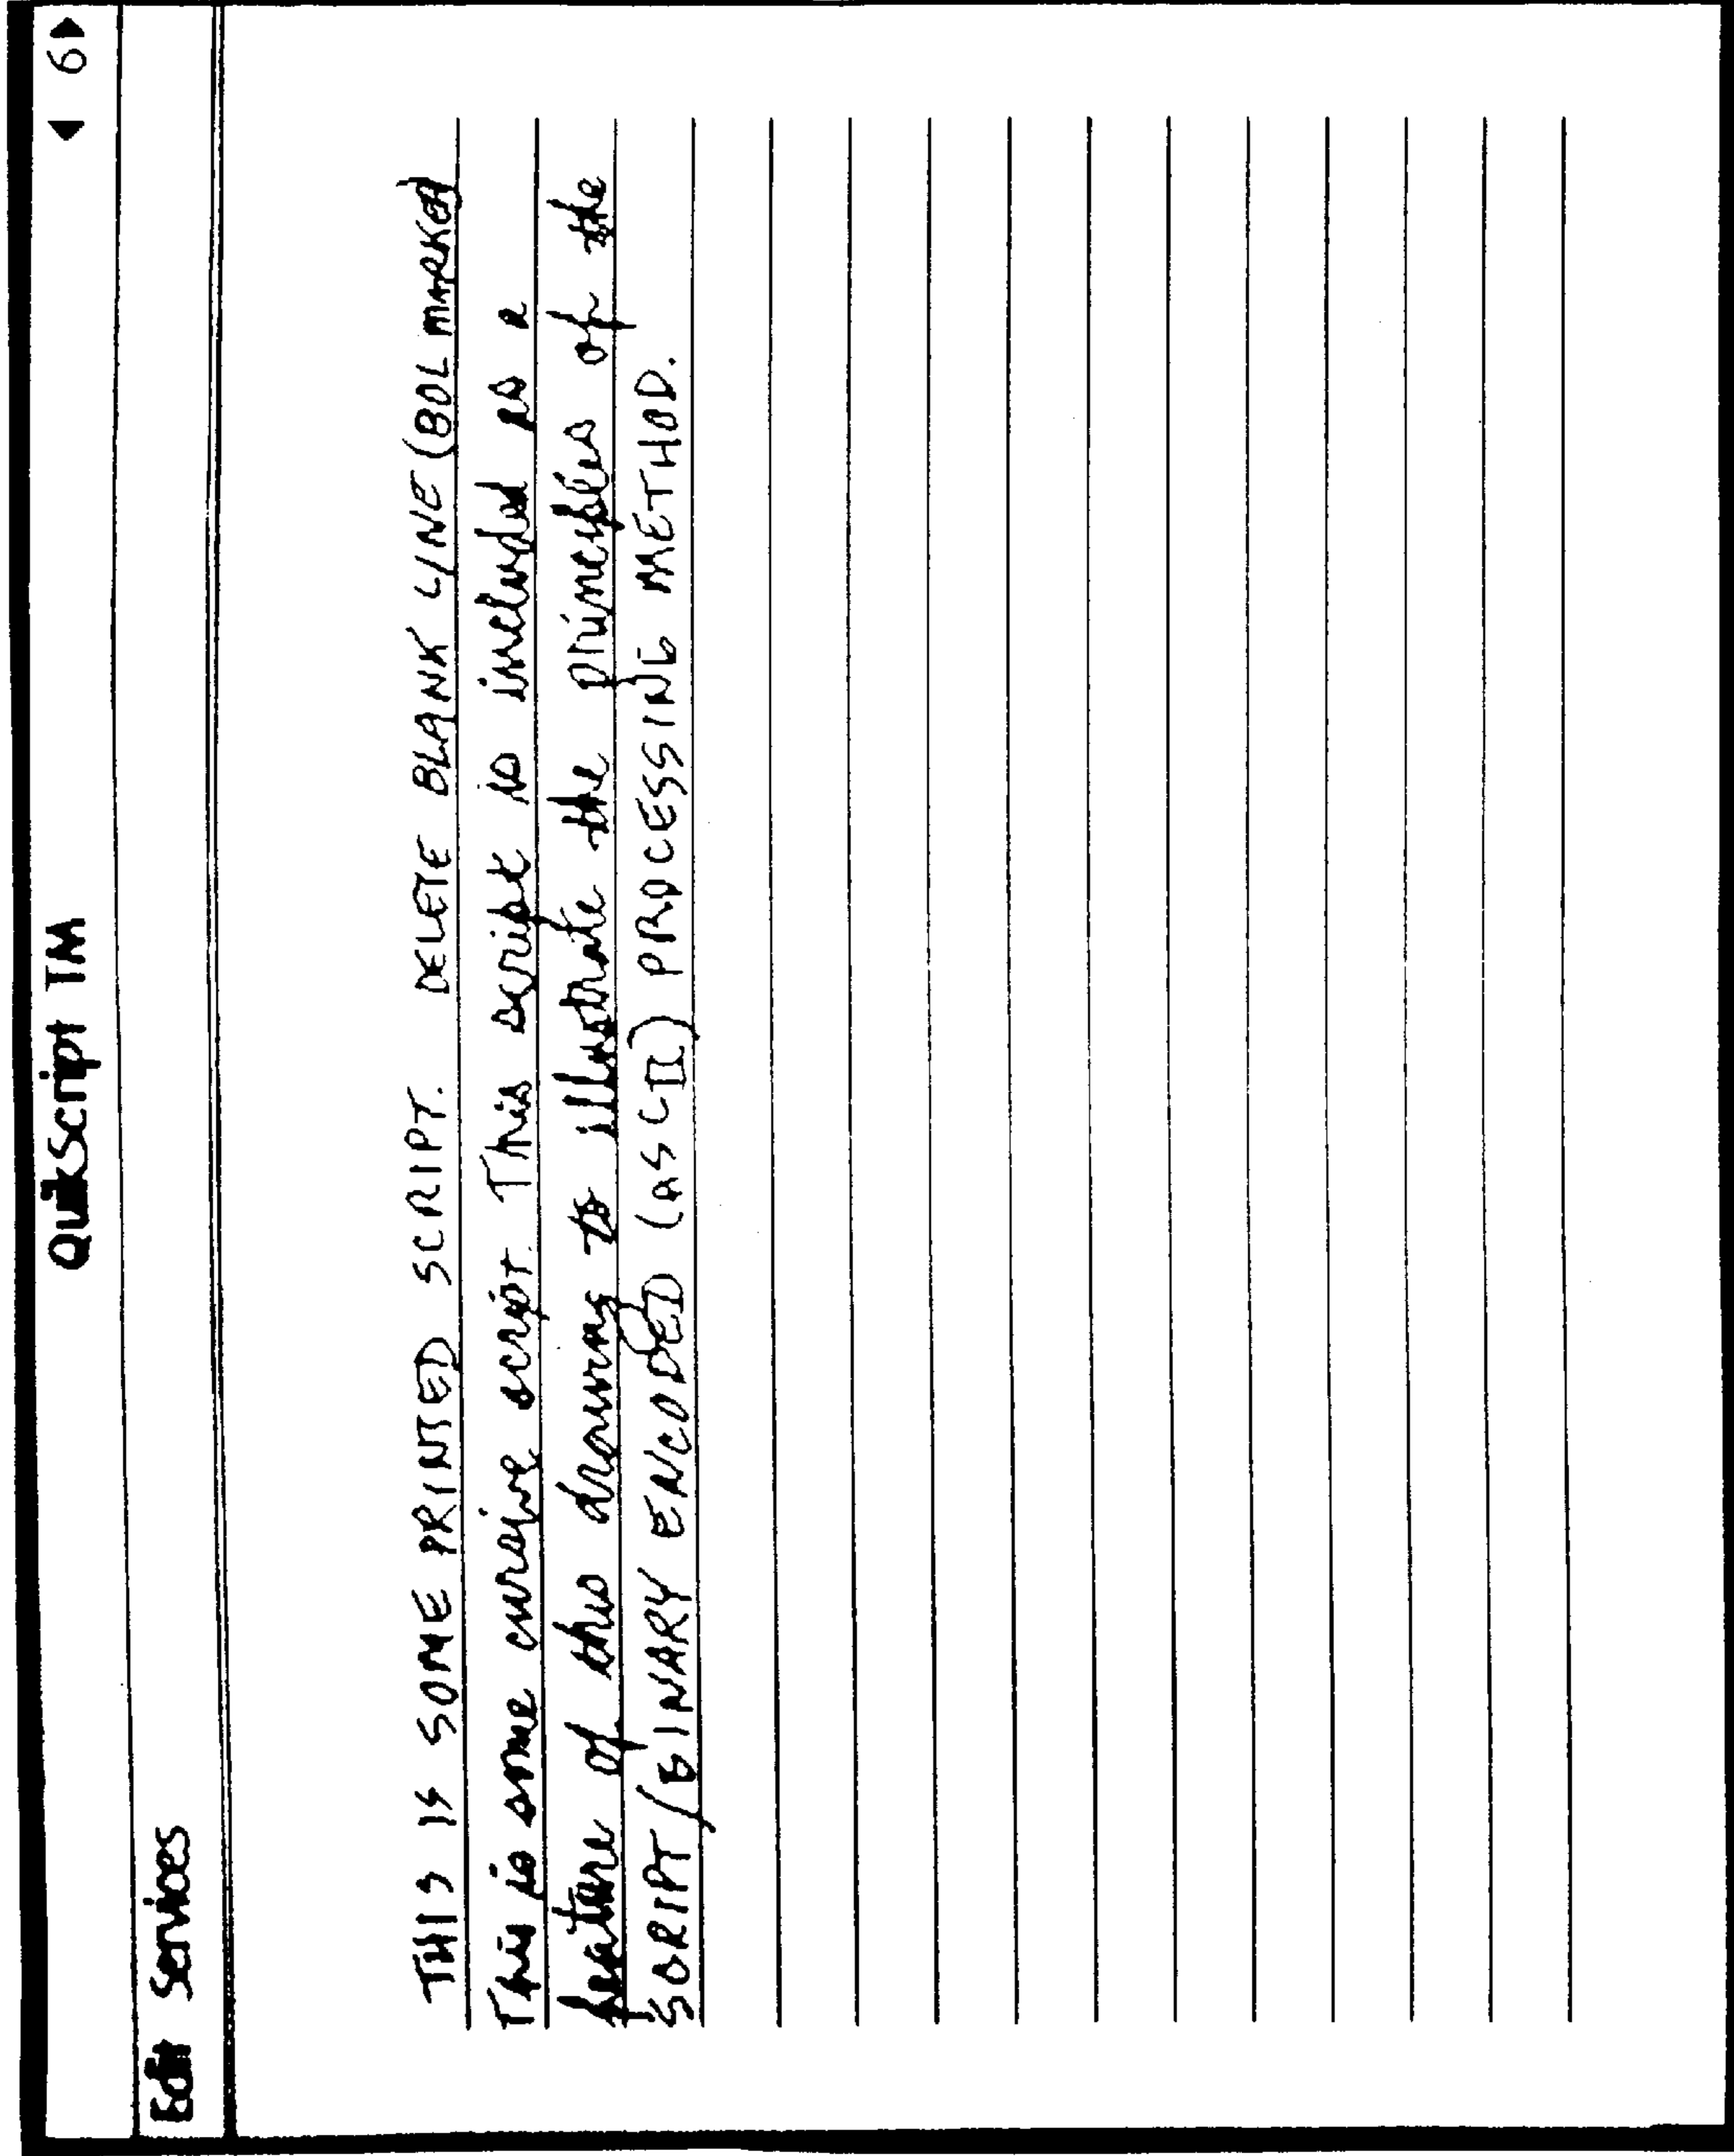 QuikScript TM ◀ 6 ▶
Edit Services
THIS IS SOME PRINTED SCRIPT. DELETE BLANK LINE (BOL MARKED
This is some cursive script. This script is included as a
feature of this drawing to illustrate the principles of the
SCRIPT/BINARY ENCODED (ASCII) PROCESSING METHOD.